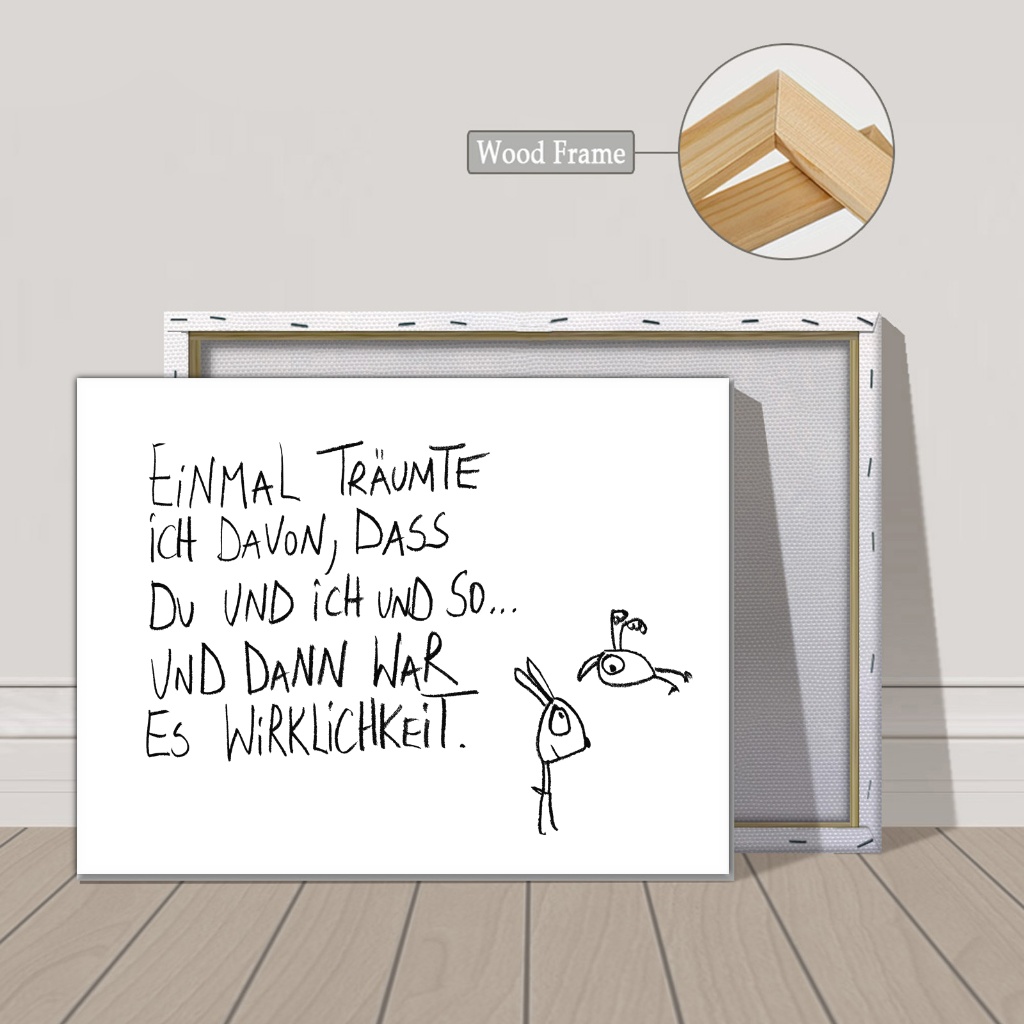 Wood Frame
EiNMAL TRÄUMTE
iCH DAVON, DASS
DU UND iCH UND SO...
UND DANN WAR
ES WiRKLiCHKEiT.